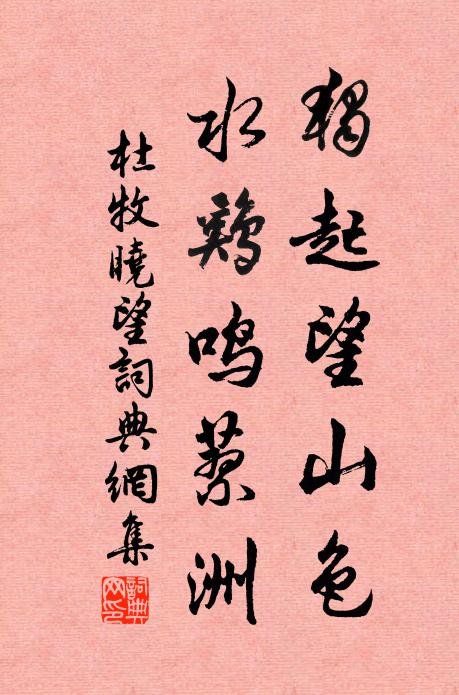 獨起望山色
水鷄鳴蓼洲
杜牧曉望詞典網集
詞典网印